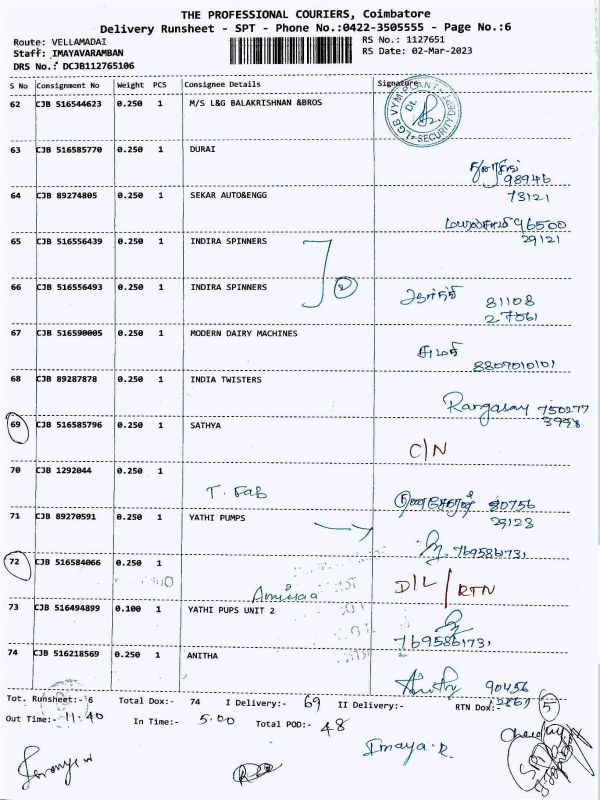 THE PROFESSIONAL COURIERS, Coimbatore
Delivery Runsheet - SPT - Phone No.:0422-3505555 - Page No.:6
Route: VELLAMADAI RS No.: 1127651
Staff: IMAYAVARAMBAN RS Date: 02-Mar-2023
DRS No.: DCJB112765106
S No Consignment No Weight PCS Consignee Details Signature
62 CJB 516544623 0.250 1 M/S L&G BALAKRISHNAN &BROS
63 CJB 516585770 0.250 1 DURAI
98946
64 CJB 89274805 0.250 1 SEKAR AUTO&ENGG 73121
96500
65 CJB 516556439 0.250 1 INDIRA SPINNERS 29121
66 CJB 516556493 0.250 1 INDIRA SPINNERS 2 81108
27061
67 CJB 516590005 0.250 1 MODERN DAIRY MACHINES
8807010101
68 CJB 89287878 0.250 1 INDIA TWISTERS
Rangasay 750277
69 CJB 516585796 0.250 1 SATHYA
C/N
70 CJB 1292044 0.250 1
T. Fab 80756
71 CJB 89270591 0.250 1 YATHI PUMPS 29123
7695867731
72 CJB 516584066 0.250 1
D/L / RTN
73 CJB 516494899 0.100 1 YATHI PUPS UNIT 2
7695867731
74 CJB 516218569 0.250 1 ANITHA
90456
Tot. Runsheet:- 6 Total Dox:- 74 I Delivery:- 69 II Delivery:- RTN Dox:- 5
Out Time:- 11.40 In Time:- 5.00 Total POD:- 48
Imaya.R.